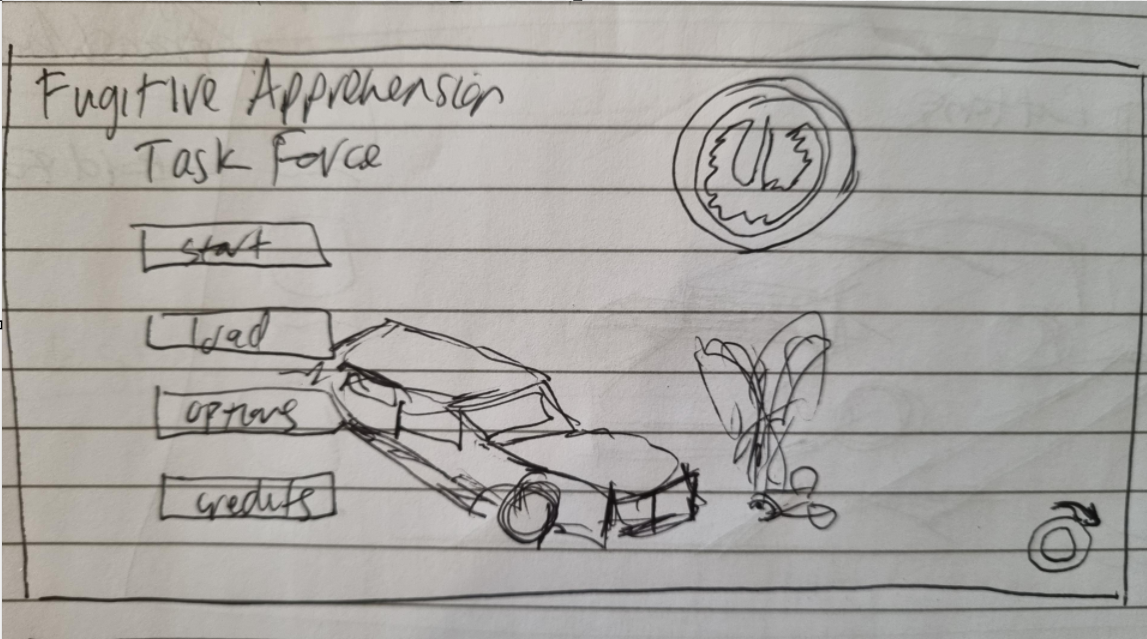 Fugitive Apprehension
Task Force
start
load
options
credits